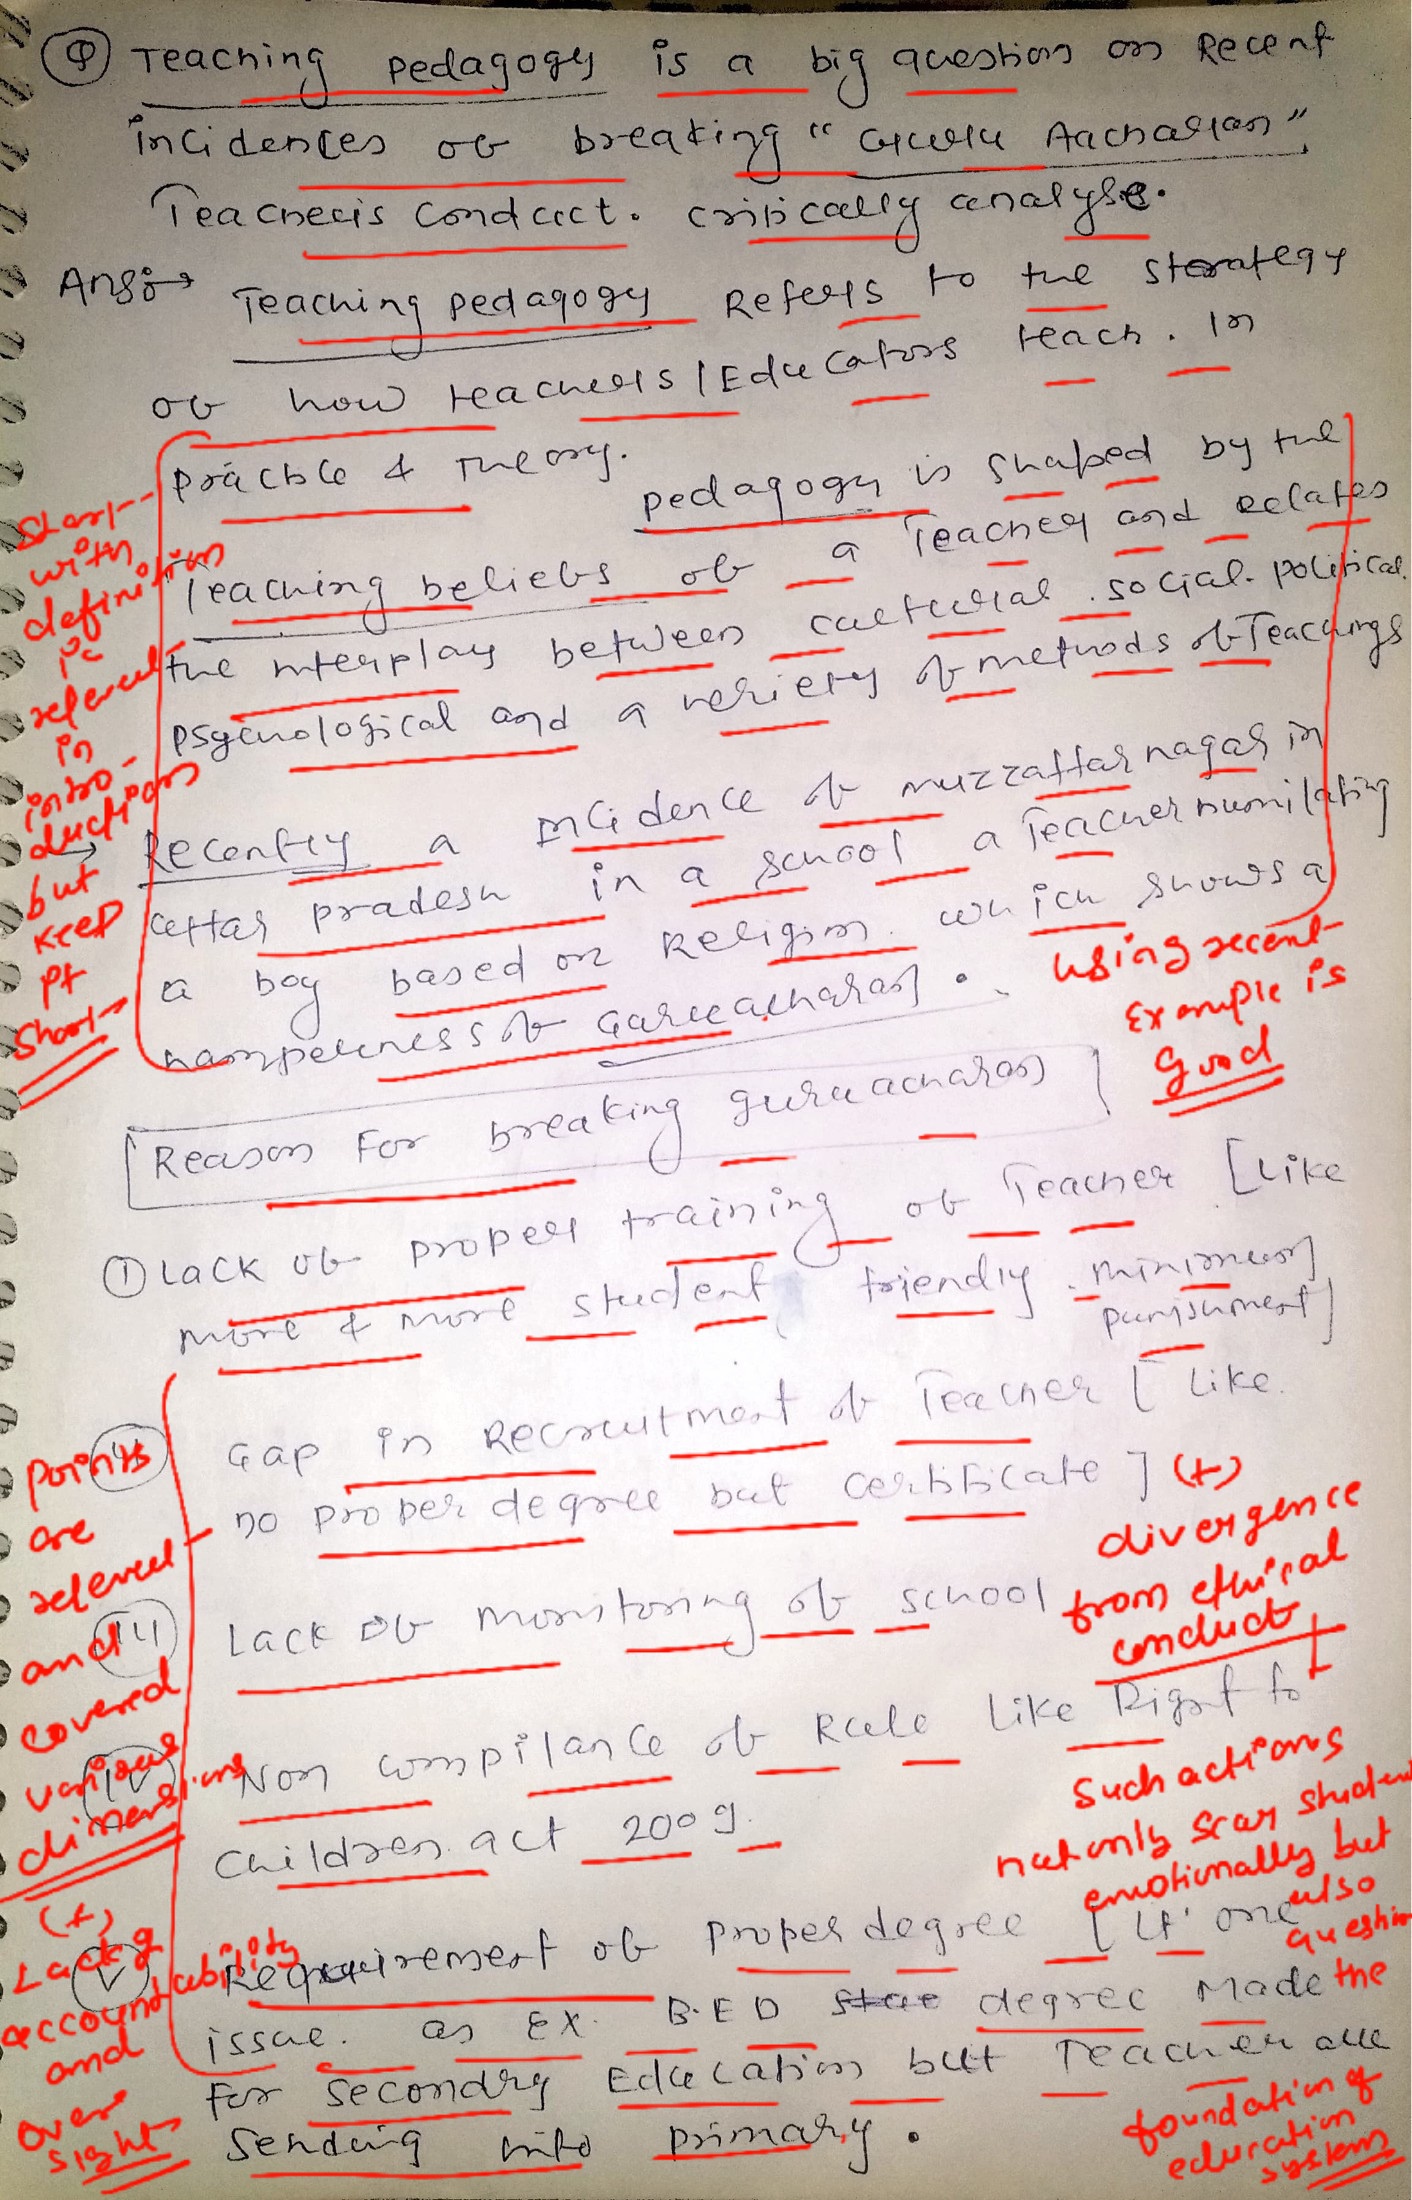 Q Teaching pedagogy is a big question on Recent
incidences of breaking "Guru Aacharan"
Teacher's conduct. critically analyse.
Ans:→ Teaching pedagogy Refers to the strategy
of how teachers / Educators teach. In
practice & Theory.
pedagogy is shaped by the
Teaching beliefs of a Teacher and relates
the interplay between cultural. social. political.
psychological and a veriety of methods of Teachings
→ Recently a Incidence of muzzaffar nagar in
uttar pradesh in a school a Teacher humilating
a boy based on Religion. which shows a
hamperness of Guruacharan.
Start
with
definition
is
relevent
in
intro-
ductions
but
keep
pt
short
using recent
Example is
good
Reason For breaking guruacharan
① Lack of proper training of Teacher [Like
more & more student friendly. minimum
punishment]
Gap in Recruitment of Teacher [Like
no proper degree but certificate]
Lack of monitoring of school
Non compilance of Rule Like Right to
Children act 2009.
(v) Requirement of proper degree [If one
issue. as Ex. B.ED degree made
for secondry Education but Teacher are
sending into primary.
points
are
relevent
and
covered
various
dimensions
(+)
Lack of
accountability
and
over
sight
(+)
divergence
from ethical
conduct
+
Such actions
not only scar student
emotionally but
also
question
the
foundation of
education
system